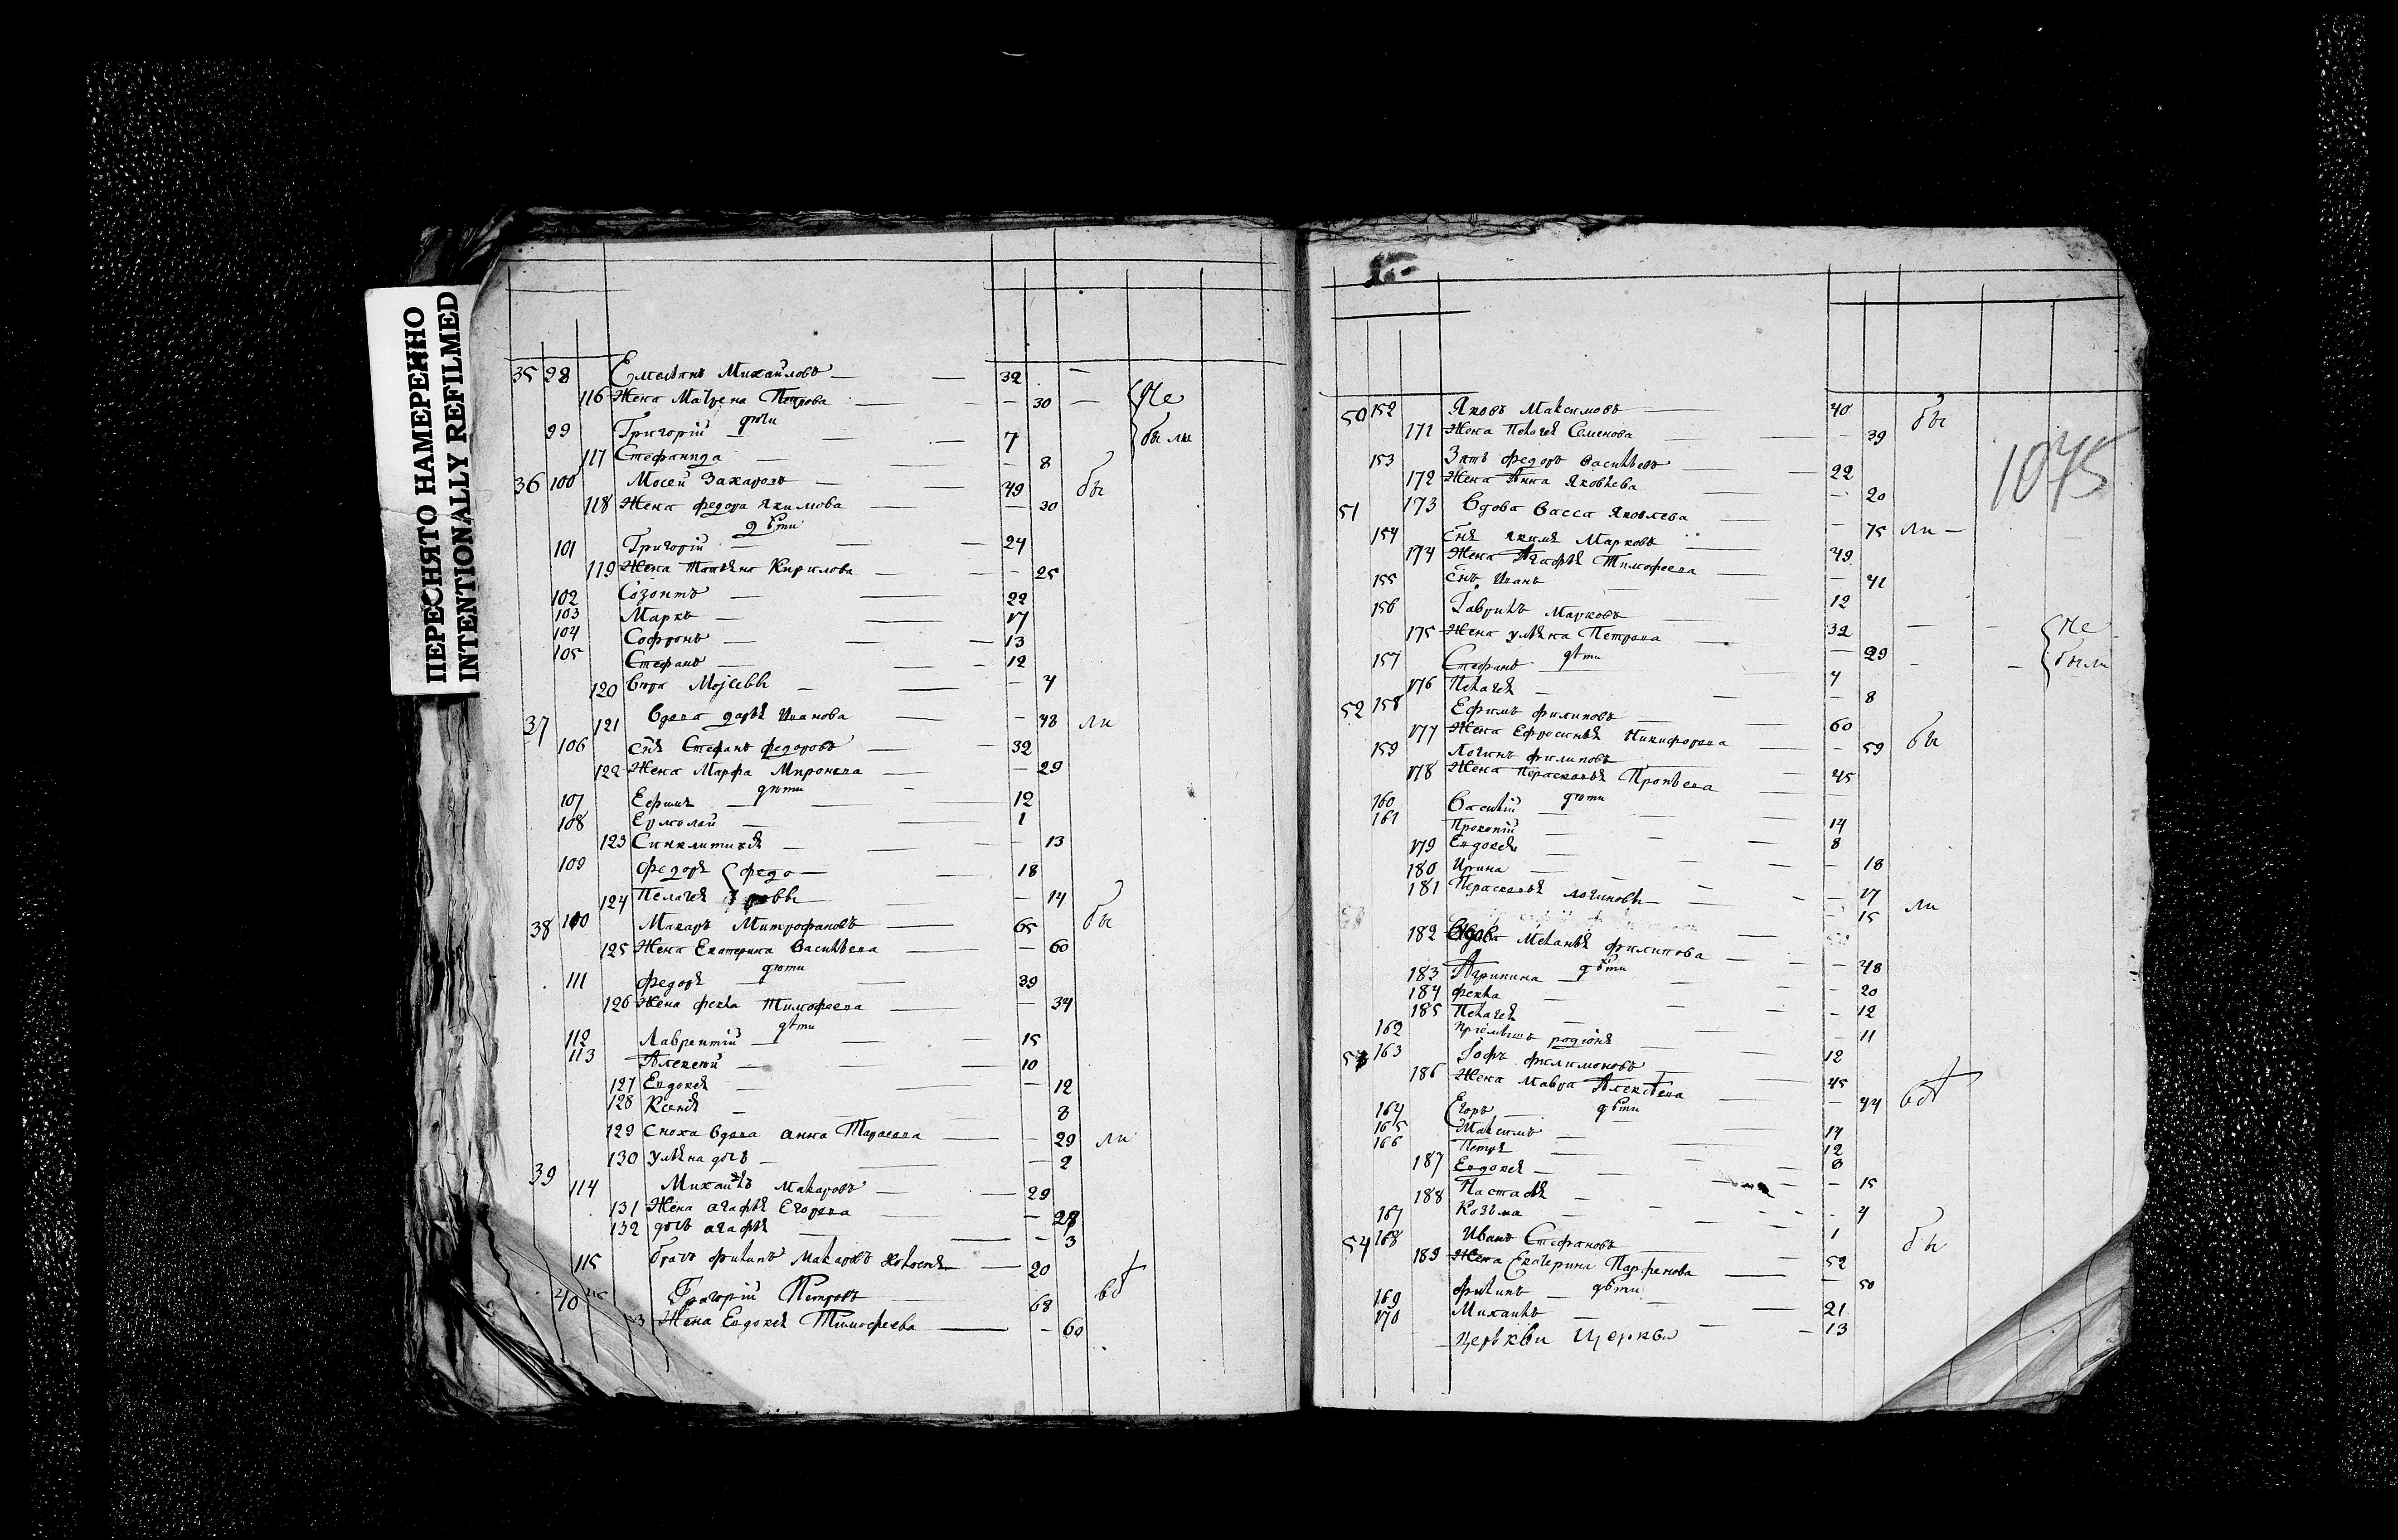 ПЕРЕСНЯТО НАМЕРЕННО
INTENTIONALLY REFILMED
35 98 Емельянъ Михайловъ 32
116 Жена Матрена Петрова 30 Не
дѣти
99 Григорій 7 были
117 Стефанида 8
36 100 Мосей Захаровъ 49 бы
118 Жена Федора Якимова 30
дѣти
101 Григорій 24
119 Жена Татьяна Кирилова 25
102 Созонтъ 22
103 Маркъ 17
104 Софронъ 13
105 Стефанъ 12
120 Вѣра 4
37 121 Вдова Дарья Иванова 48 ли
106 снъ Стефанъ Федоровъ 32
122 Жена Марфа Миронова 29
дѣти
107 Ефимъ 12
108 Ермолай 1
123 Синклитикія 13
109 Федоръ Федо 18
124 Пелагея ровы 14
38 110 Макаръ Митрофановъ 65 бы
125 Жена Екатерина Васильева 60
дѣти
111 Федоръ 39
126 Жена Фекла Тимофеева 34
дѣти
112 Лаврентій 15
113 Алексѣй 10
127 Евдокія 12
128 Ксенія 8
129 Сноха вдова Анна Тарасова 29 ли
130 Ульяна дочь 2
39 114 Михаилъ Макаровъ 29
131 Жена Агафья Егорова 28
132 дочь Агафья 3
115 братъ Филипъ Макаровъ холостъ 20
40 Григорій Петровъ 68
Жена Евдокія Тимофеева 60
1045
50 152 Яковъ Максимовъ 40 бы
171 Жена Пелагея Семенова 39
153 Зять Федоръ Васильевъ 22
172 Жена Анна Яковлева 20
51 173 Вдова Васса Яковлева 75 ли
154 снъ Якимъ Марковъ 49
174 Жена Агафья Тимофеева 41
155 снъ Иванъ 12
156 Гаврилъ Марковъ 32
175 Жена Ульяна Петрова 29 Не
157 Стефанъ дѣти 4 были
176 Пелагея 8
52 158 Ефимъ Филиповъ 60
177 Жена Ефросинья Никифорова 59 бы
159 Логинъ Филиповъ 45
178 Жена Парасковья
дѣти
160 Василій 14
161 Прокопій 8
179 Евдокея 18
180 Ирина 17
181 Парасковья Логиновы 15 ли
182 Вдова Меланья Филипова 48
183 Агрипина дѣти 20
184 Фекла 12
185 Пелагея 11
162 Пріемышъ Родіонъ 12
163 Іовъ Филимоновъ 45
186 Жена Мавра Алексѣева 44
164 Егоръ дѣти 14
165 Максимъ 12
166 Петръ 8
187 Евдокея 15
188 Настасья 4
167 Козьма 1
54 168 Иванъ Стефановъ 52 бы
189 Жена Екатерина Парфенова 50
169 Филипъ дѣти 21
170 Михаилъ 13
Церькви Церкви